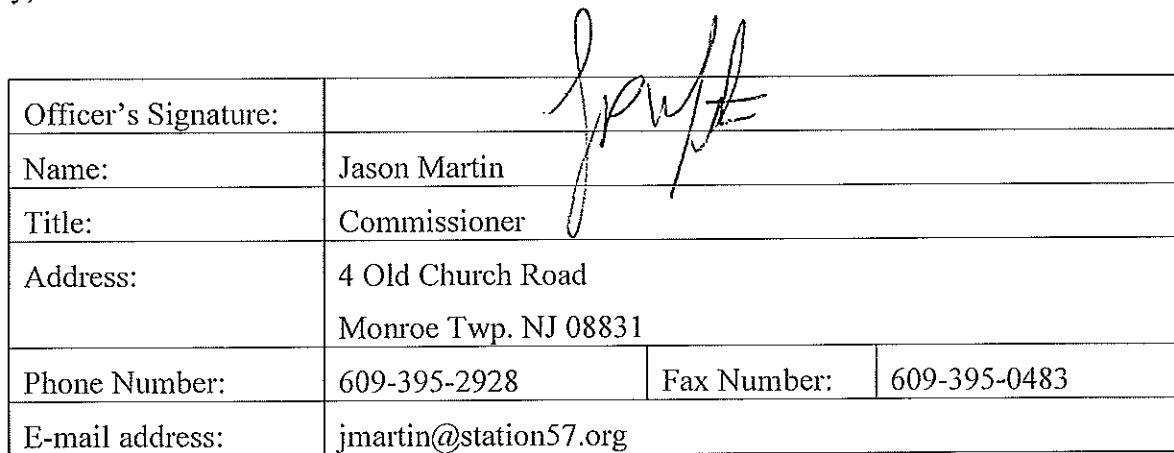 y,
Officer's Signature:
Name: Jason Martin
Title: Commissioner
Address: 4 Old Church Road
Monroe Twp. NJ 08831
Phone Number: 609-395-2928 Fax Number: 609-395-0483
E-mail address: jmartin@station57.org